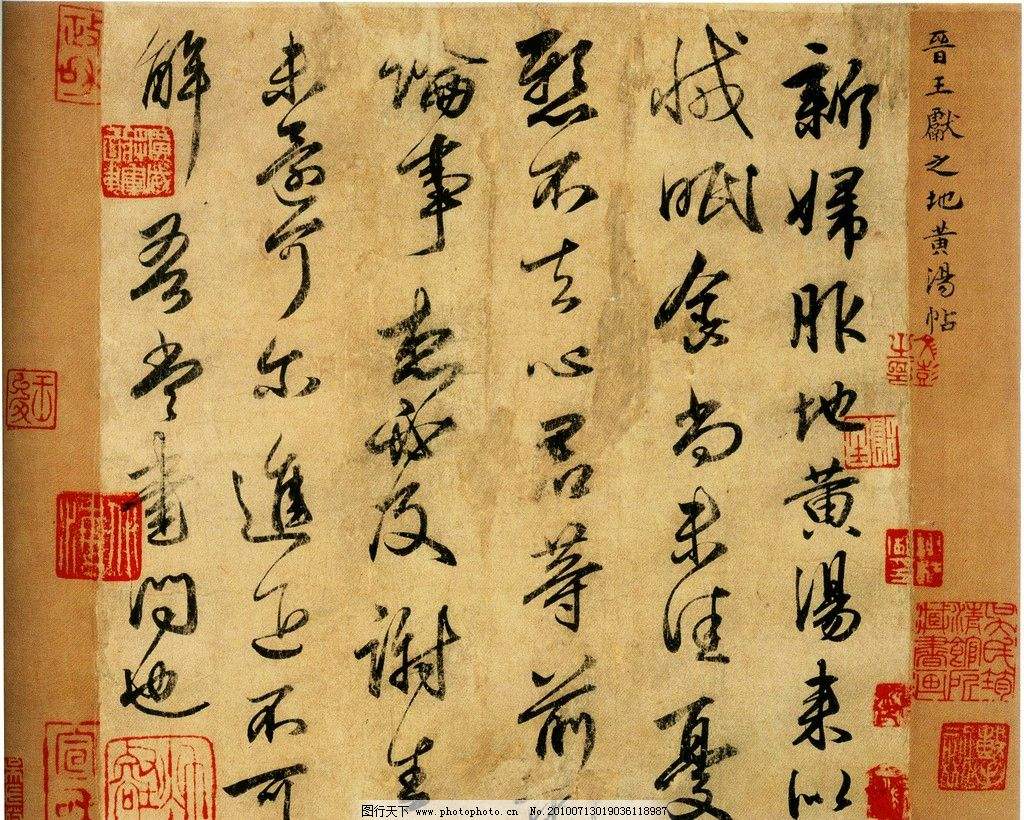 晉王獻之地黄湯帖
新婦服地黄湯来似
減眠食尚未佳憂
懸不去心君等前
論事想必及謝生
未還可尔進退不可
解吾當書問也
图行天下 www.photophoto.cn No.20100713019036118987